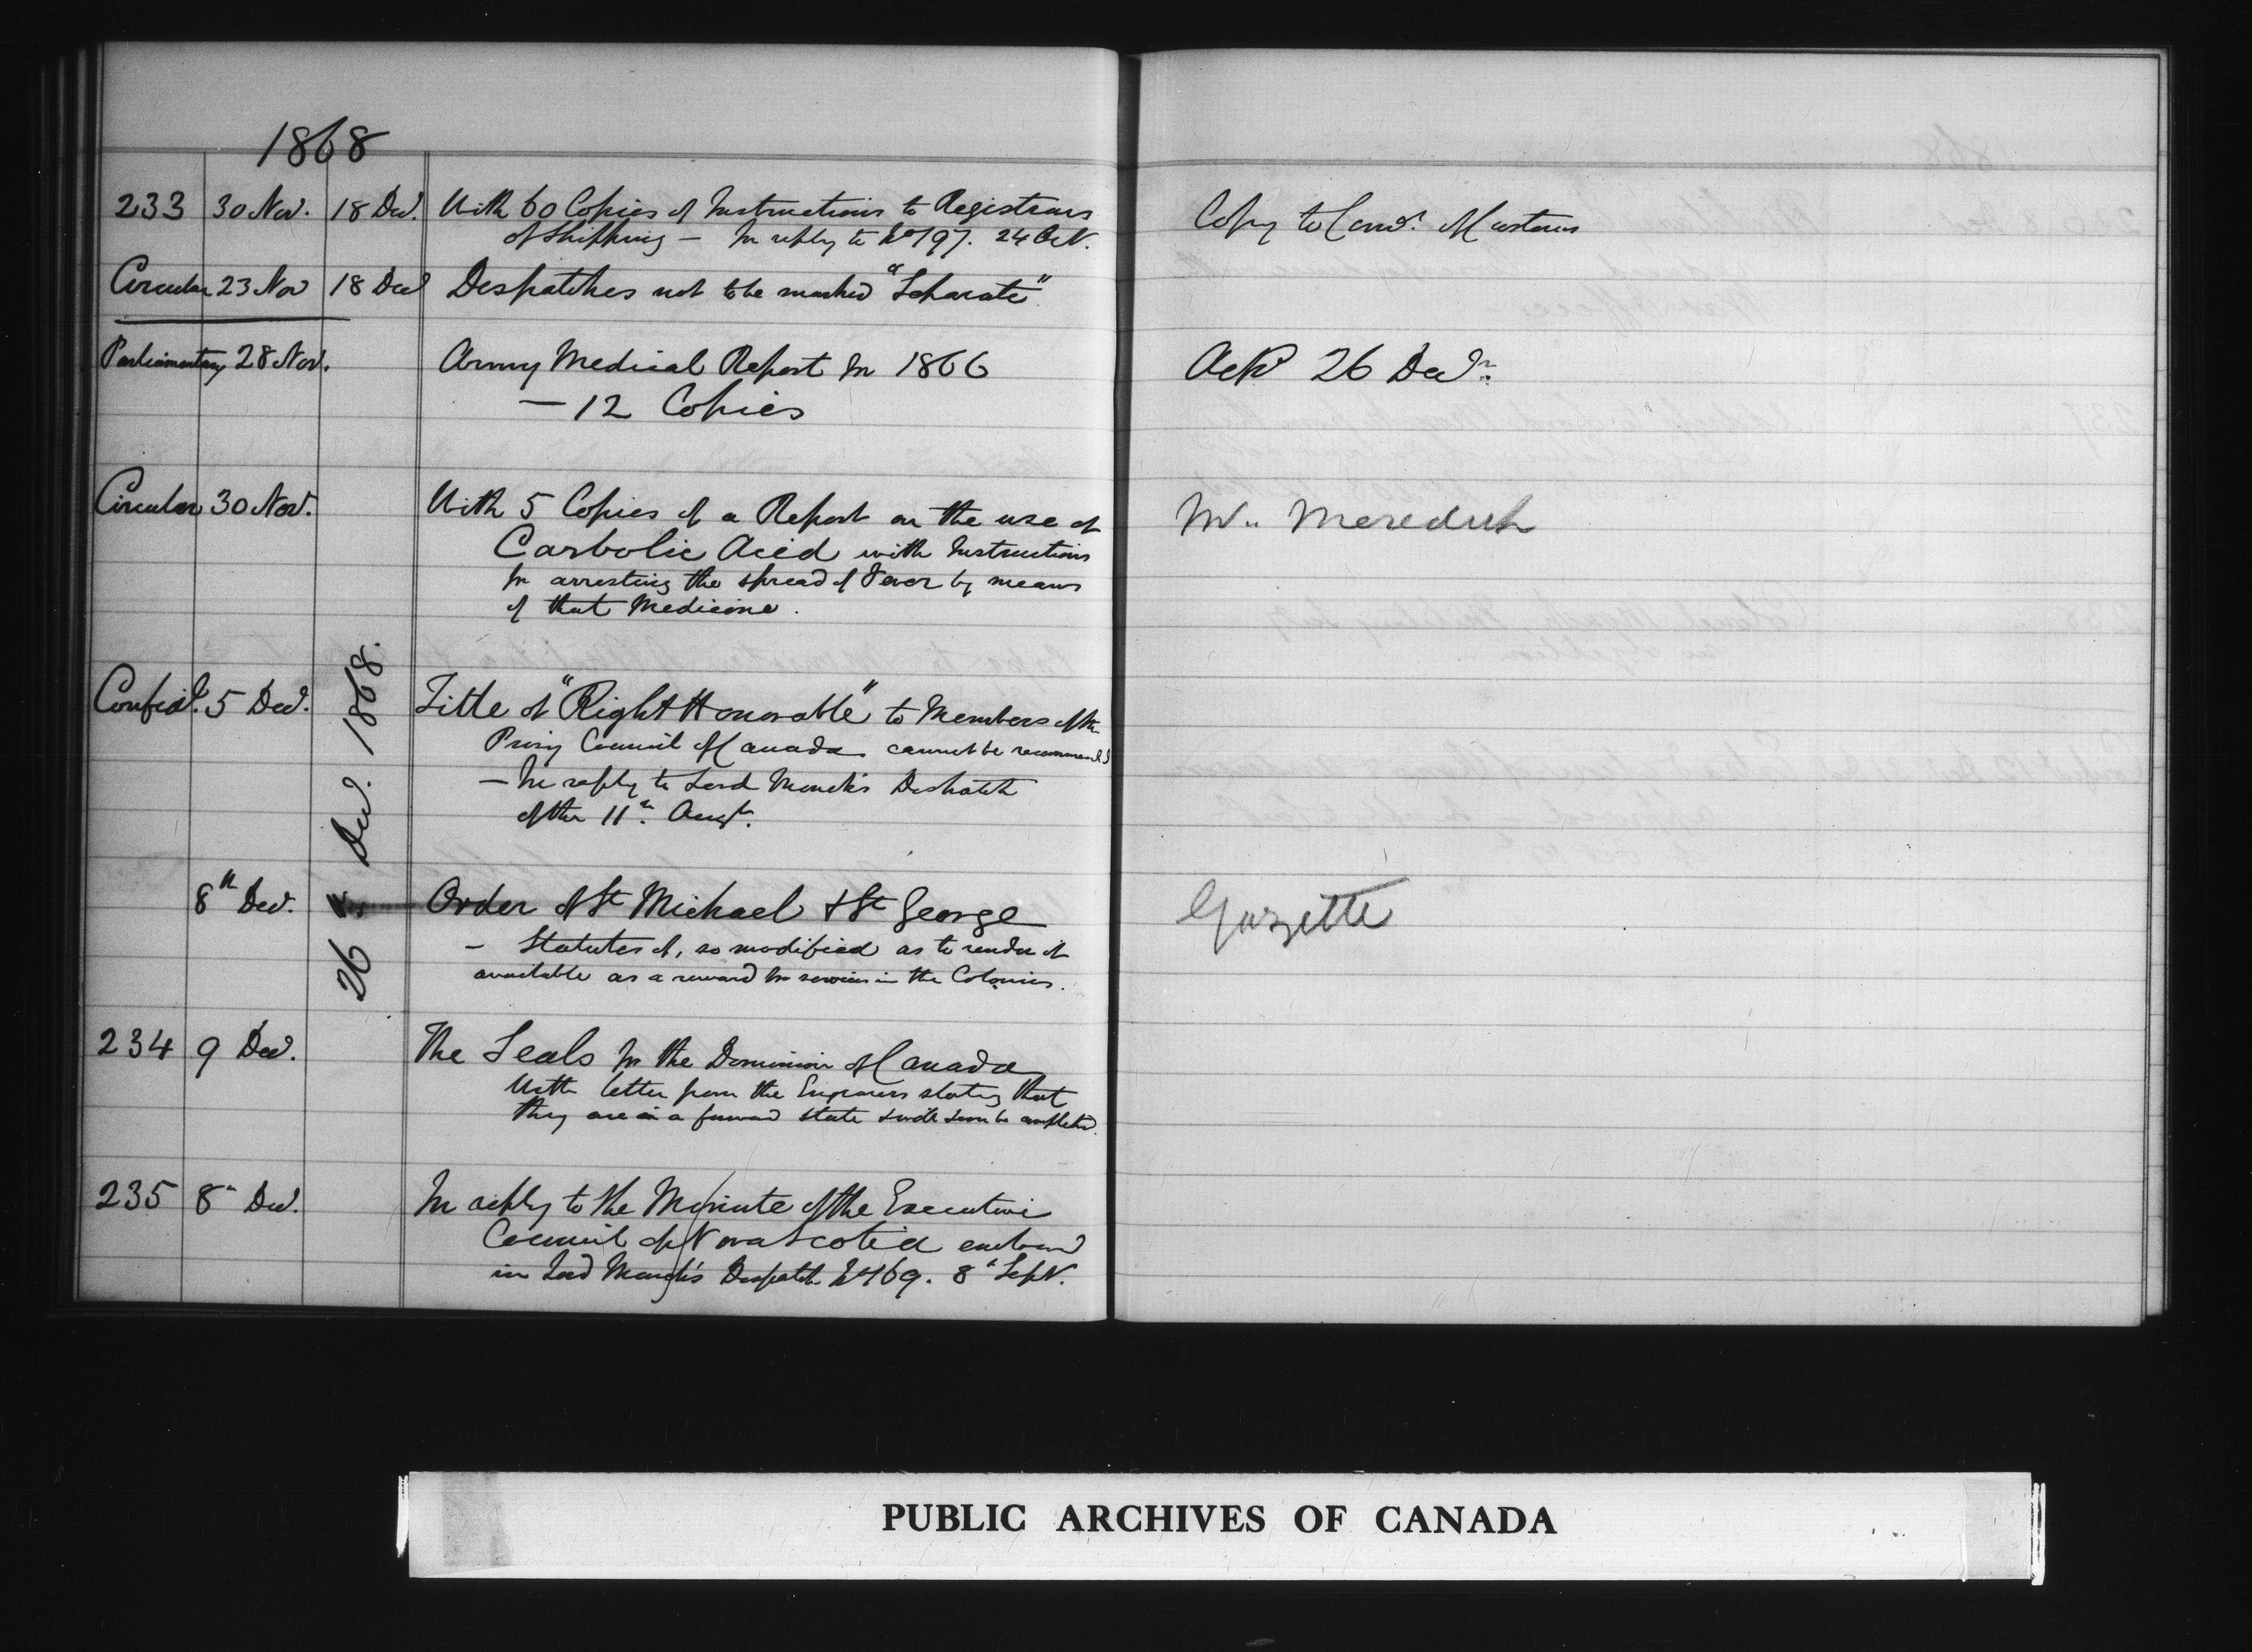 1868
233 30 Nov. 18 Dec. With 60 Copies of Instructions to Registrars
of Shipping — In reply to No 197. 24 Oct.
Copy to Comr. of Customs
Circular 23 Nov 18 Dec Despatches not to be marked "Separate"
Parliamentary 28 Nov. Army Medical Report for 1866
— 12 Copies
Ackd 26 Decr.
Circular 30 Nov. With 5 Copies of a Report on the use of
Carbolic Acid with Instructions
for arresting the spread of Fever by means
of that Medicine.
Mr. Meredith
26 Dec. 1868.
Confidl. 5 Dec. Title of "Right Honorable" to Members of the
Privy Council of Canada cannot be recommend
— In reply to Lord Monck's Despatch
of the 11th. Augt.
8th Dec. Order of St Michael & St George
— Statutes of, so modified as to render it
available as a reward for services in the Colonies.
Gazette
234 9 Dec. The Seals for the Dominion of Canada
With letter from the Engravers stating that
they are in a forward state & will soon be completed.
235 8th Dec. In reply to the Minute of the Executive
Council of Nova Scotia enclosed
in Lord Monck's Despatch No 169. 8th Sept.
PUBLIC ARCHIVES OF CANADA